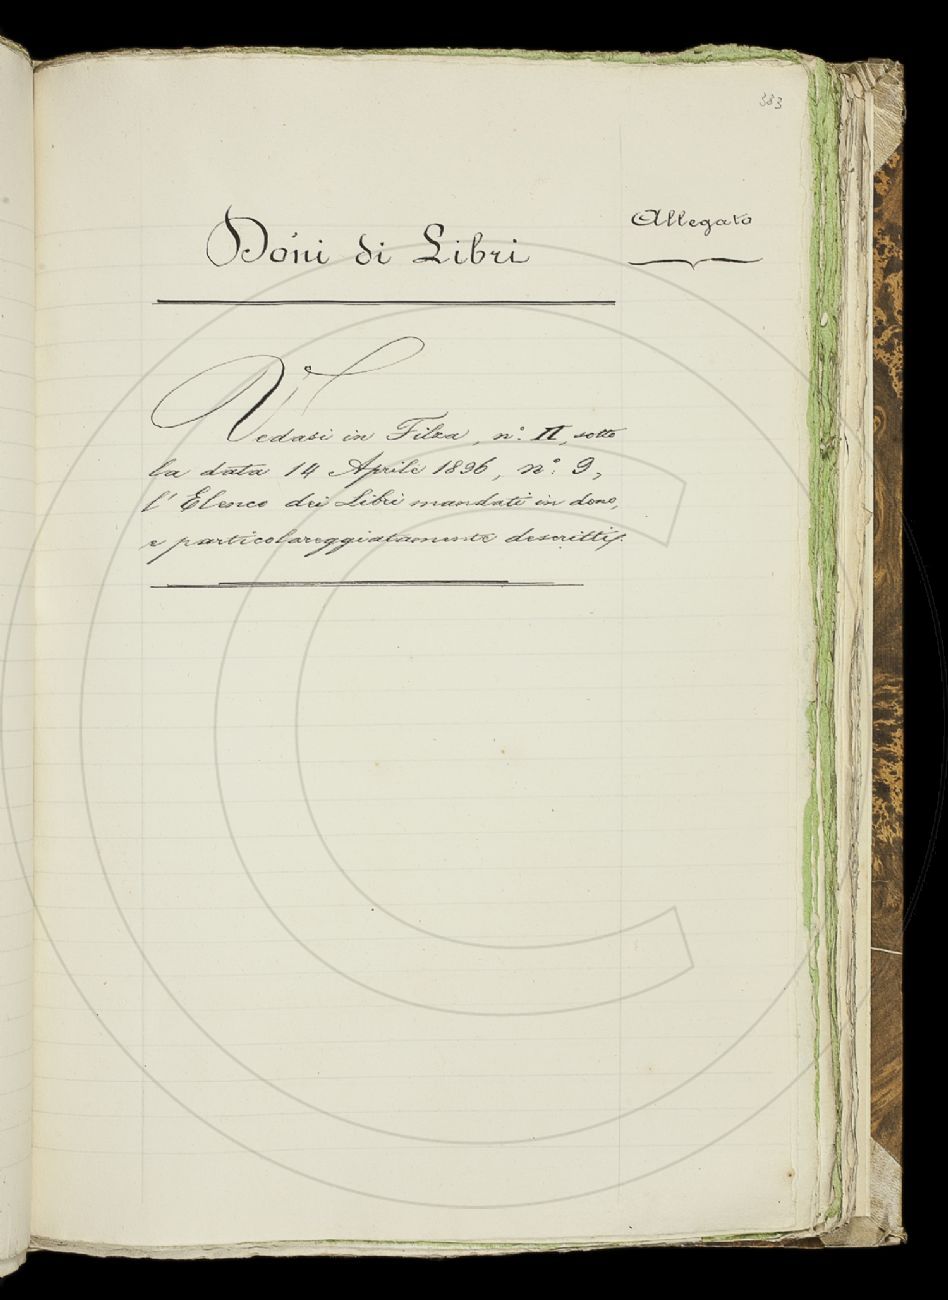 383
Doni di Libri
Allegato
Vedasi in Filza, n.° II, sotto
la data 14 Aprile 1896, n.° 9,
l' Elenco dei Libri mandati in dono,
e particolareggiatamente descritti.